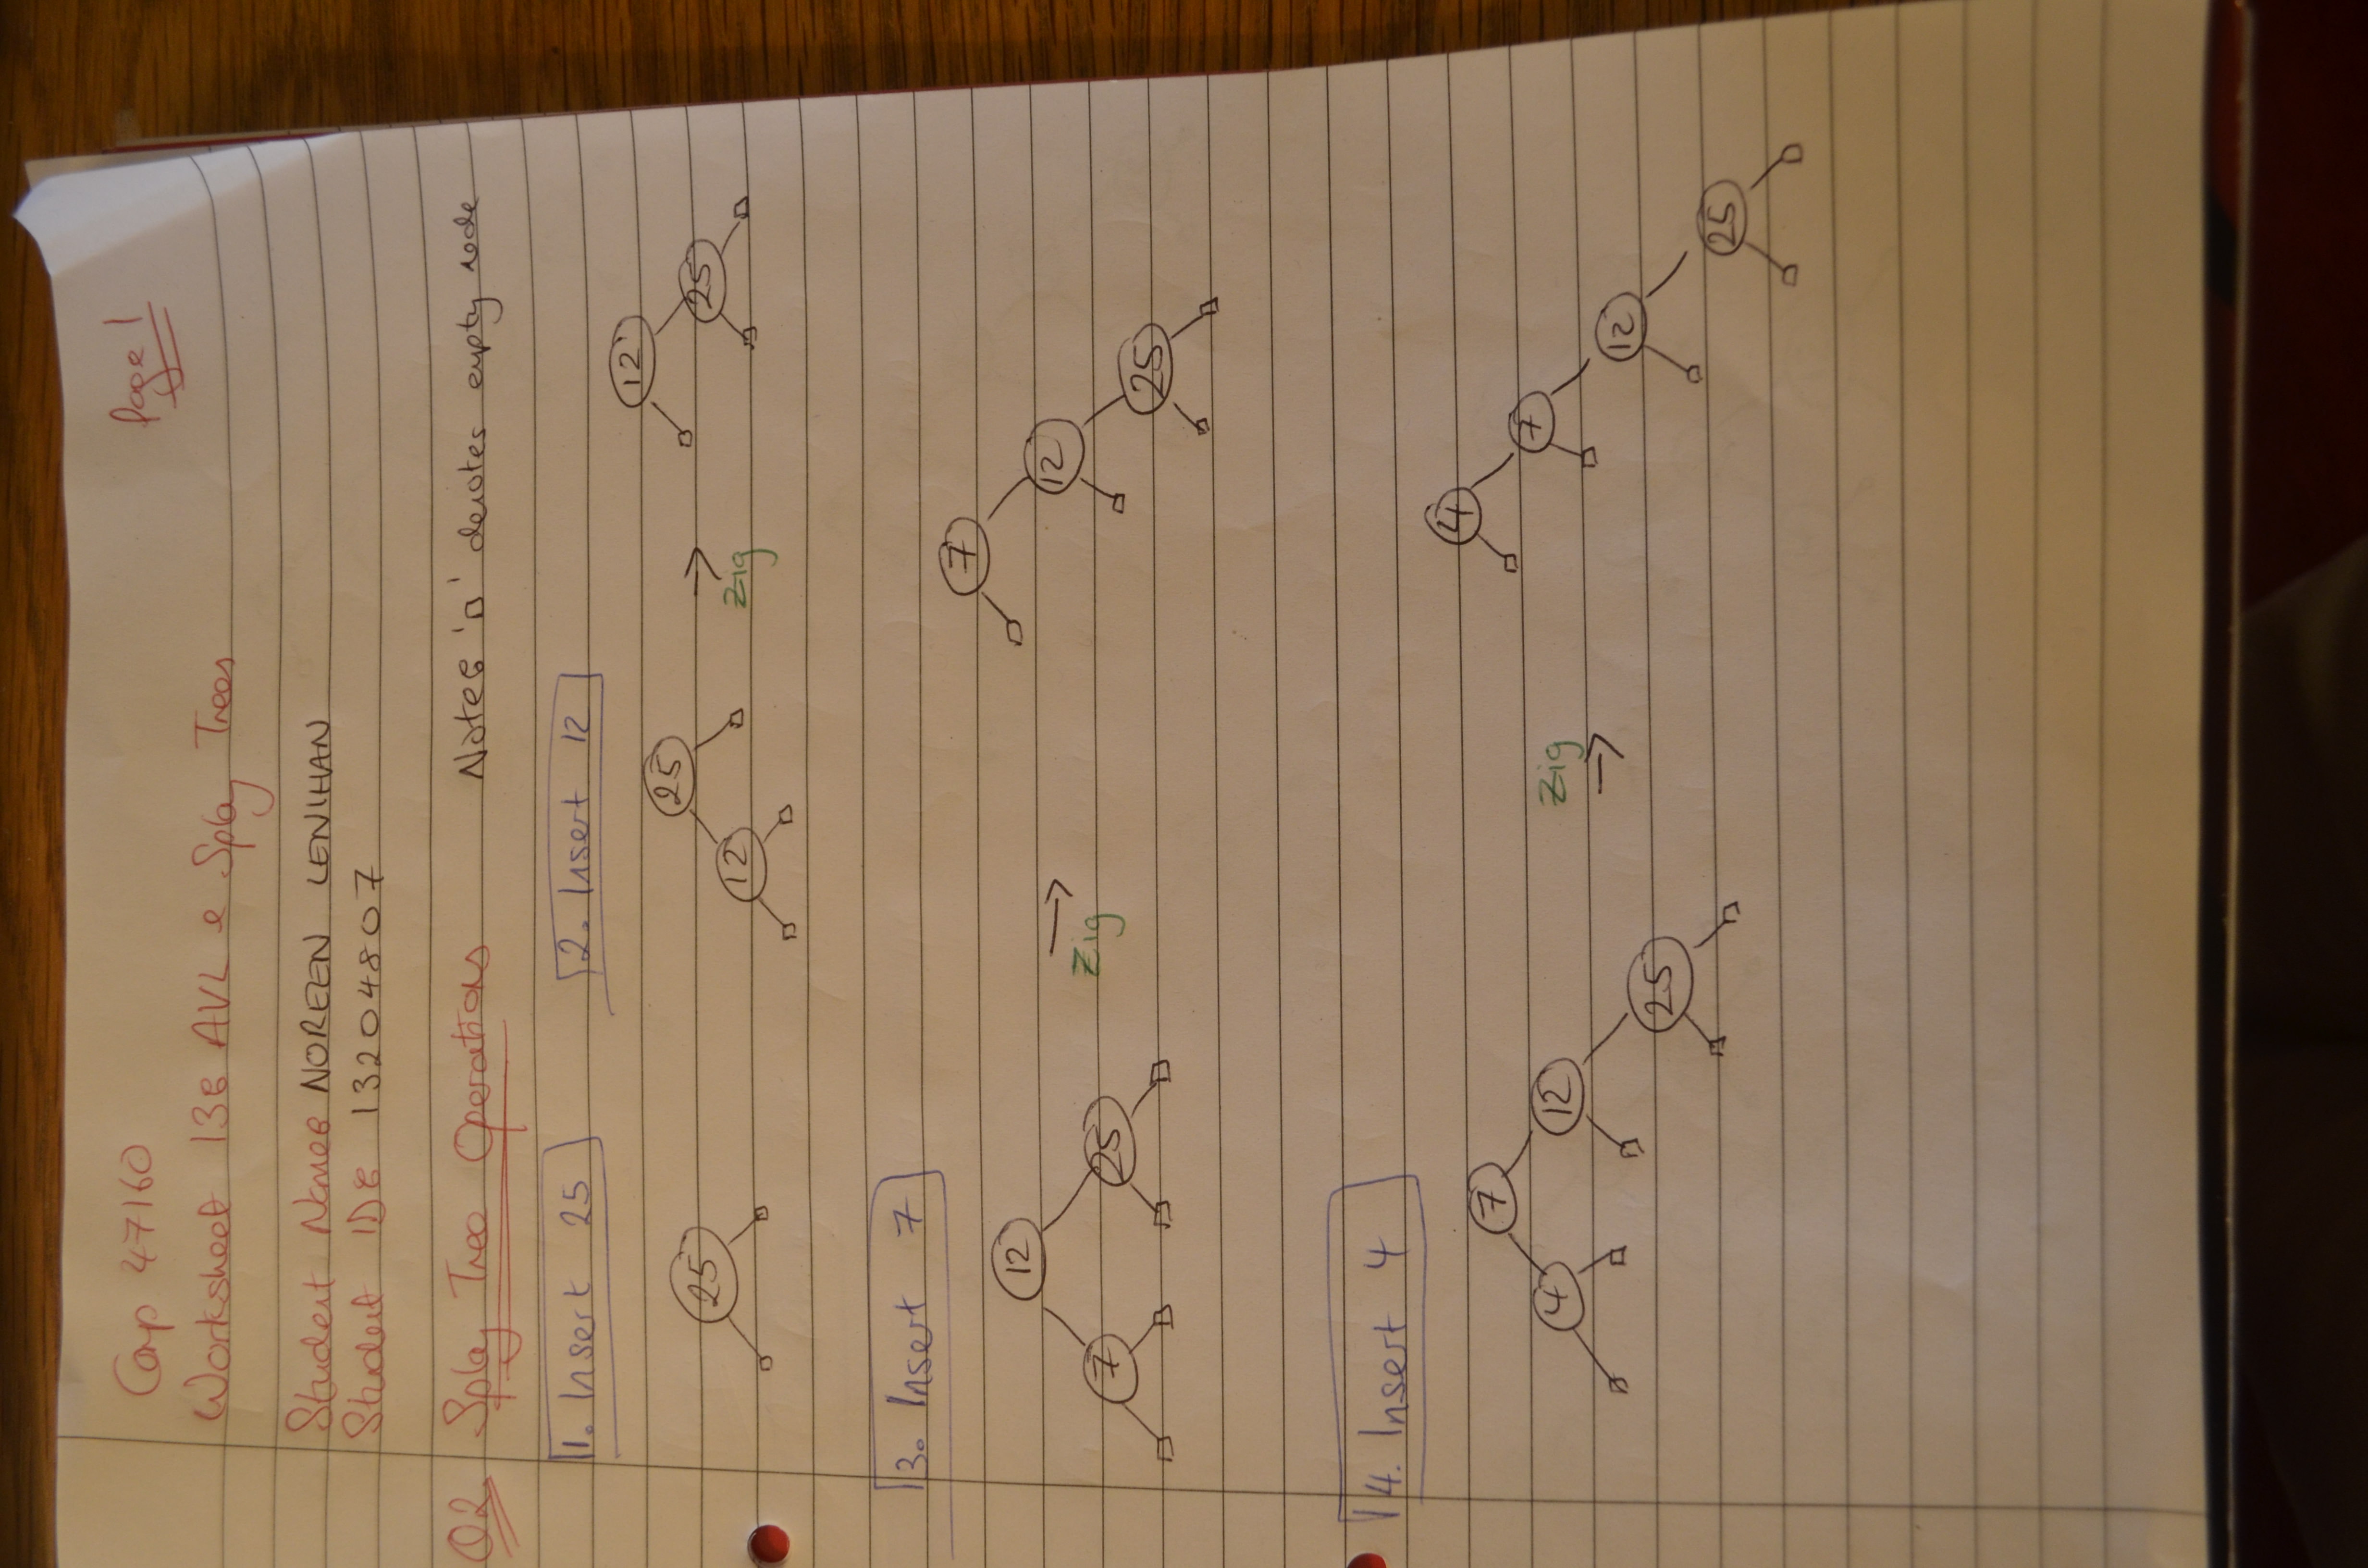 Comp 47160
Page 1
Worksheet 13: AVL & Splay Trees
Student Name: NOREEN LENIHAN
Student ID: 13204807
Q2. Splay Tree Operations Note: '□' denotes empty node
1. Insert 25 2. Insert 12
25
25
12
Zig
12
25
3. Insert 7
12
7 25
Zig
7
12
25
4. Insert 4
7
4 12
25
Zig
4
7
12
25